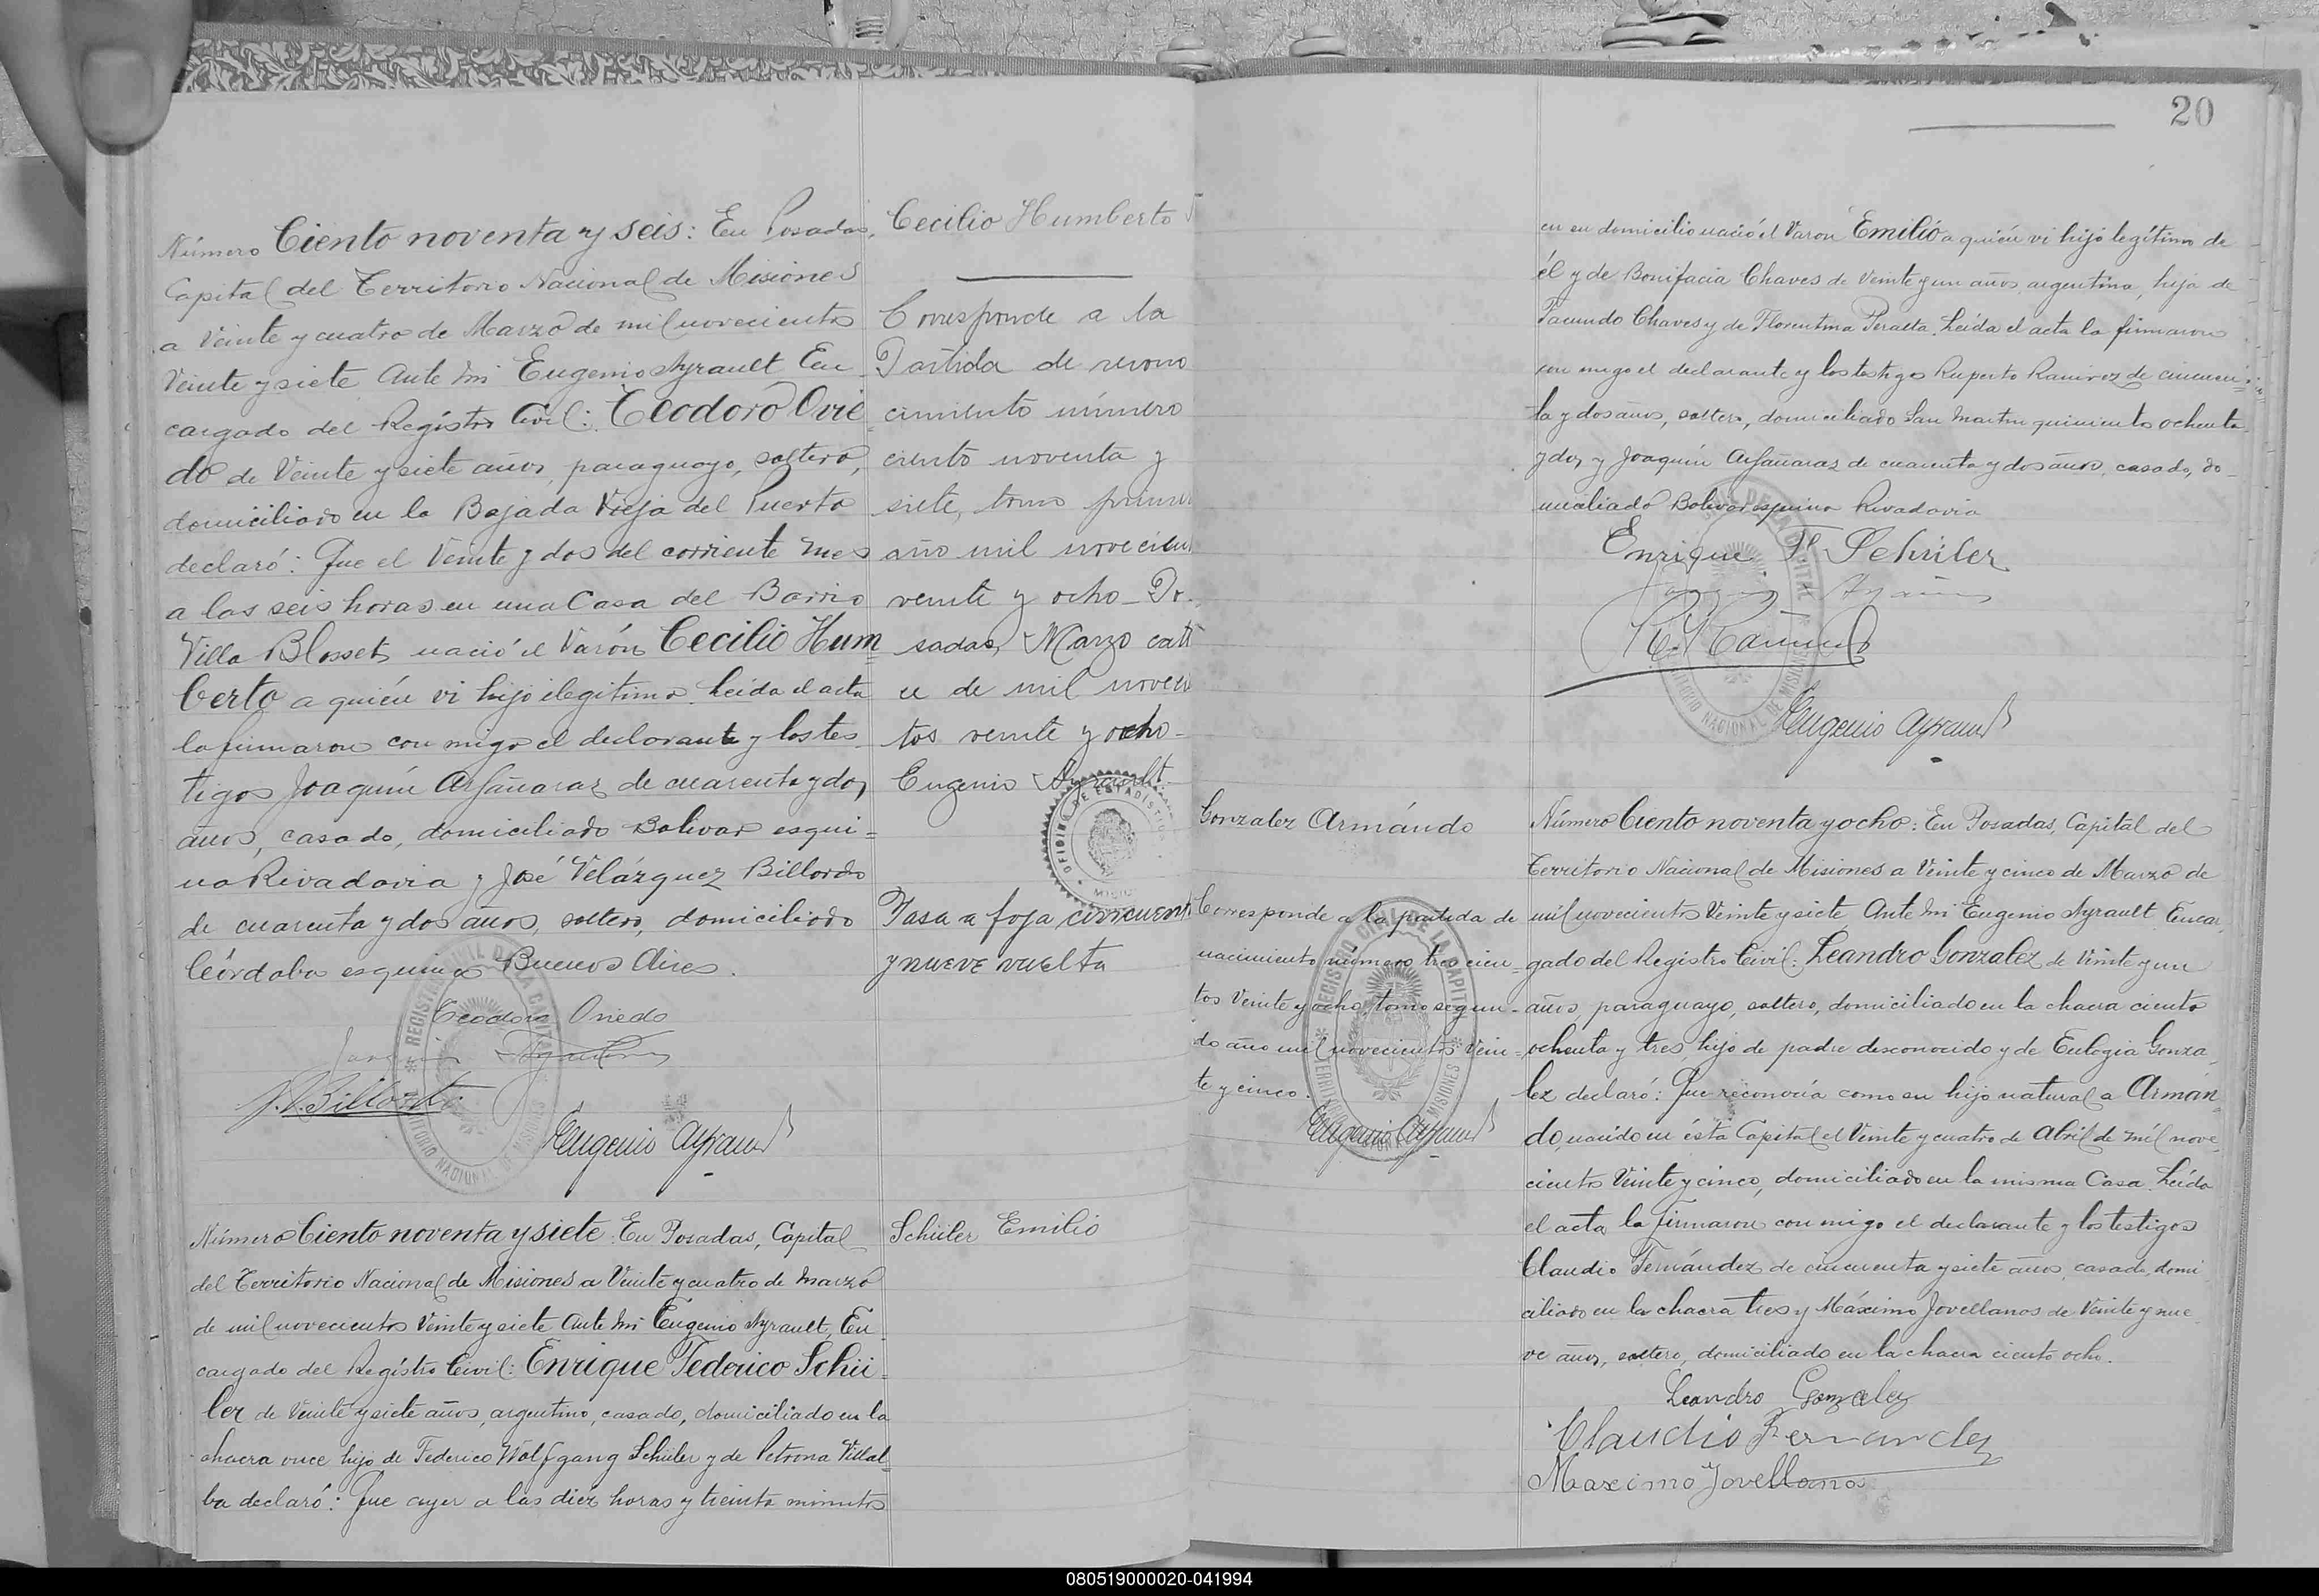 Número Ciento noventa y seis: En Posadas,
Capital del Territorio Nacional de Misiones
a Veinte y cuatro de Marzo de mil novecientos
Veinte y siete Ante mi Eugenio Ayrault En
cargado del Registro Civil: Teodoro Ovie
do de Veinte y siete años, paraguayo, soltero,
domiciliado en la Bajada Vieja del Puerto
declaró: Que el Veinte y dos del corriente mes
a las seis horas en una Casa del Barrio
Villa Blosset, nació el Varón Cecilio Hum
berto a quién vi hijo ilegitimo. Leida el acta
la firmaron con migo el declarante y los tes
tigos Joaquín Arfañaraz de cuarenta y dos
años, casado, domiciliado Bolivar esqui=
na Rivadavia y José Velázquez Billordo
de cuarenta y dos años, soltero, domiciliado
Córdoba esquina Buenos Aires.
Teodoro Oviedo
J. V. Billordo
Eugenio Ayrault
Cecilio Humberto
Corresponde a la
Partida de recono
cimiento número
ciento noventa y
siete, tomo primer
año mil novecien
veinte y ocho - Po-
sadas, Marzo catr
ce de mil novecien
tos veinte y ocho -
Eugenio Ayrault.
OFICINA DE ESTADISTICA
Pasa a foja cincuent
y nueve vuelta
REGISTRO CIVIL DE LA CAPITAL
TERRITORIO NACIONAL DE MISIONES
Número Ciento noventa y siete: En Posadas, Capital
del Territorio Nacional de Misiones a Veinte y cuatro de marzo
de mil novecientos Veinte y siete Ante mi Eugenio Ayrault, En
cargado del Registro Civil: Enrique Federico Schü=
ler de Veinte y siete años, argentino, casado, domiciliado en la
chacra once hijo de Federico Wolfgang Schüler y de Petrona Villal=
ba declaró: Que ayer a las diez horas y treinta minutos
Schüler Emilio
20
en su domicilio nació el Varon Emilio a quién vi hijo legítimo de
él y de Bonifacia Chaves de Veinte y un años, argentina, hija de
Facundo Chaves y de Florentina Peralta. Leída el acta la firmaron
con migo el declarante y los testigos Ruperto Ramirez de cincuen=
ta y dos años, soltero, domiciliado San Martin quinientos ochenta
y dos y Joaquín Arfañaraz de cuarenta y dos años, casado, do-
miciliado Bolivar esquina Rivadavia
Enrique F. Schüler
R. Ramirez
Eugenio Ayrault
REGISTRO CIVIL DE LA CAPITAL
TERRITORIO NACIONAL DE MISIONES
Gonzalez Armándo
Corresponde a la partida de
nacimiento número tres cien=
tos Veinte y ocho, tomo segun=
do año mil novecientos Vein=
te y cinco.
Eugenio Ayrault
REGISTRO CIVIL DE LA CAPITAL
TERRITORIO NACIONAL DE MISIONES
Número Ciento noventa y ocho: En Posadas, Capital del
Territorio Nacional de Misiones a Veinte y cinco de Marzo de
mil novecientos Veinte y siete Ante mi Eugenio Ayrault Encar
gado del Registro Civil: Leandro Gonzalez de Veinte y un
años, paraguayo, soltero, domiciliado en la chacra ciento
ochenta y tres, hijo de padre desconocido y de Eulogia Gonza
lez declaró: Que reconocía como su hijo natural a Arman
do, nacido en ésta Capital el Veinte y cuatro de Abril de mil nove
cientos Veinte y cinco, domiciliado en la misma Casa. Leída
el acta la firmaron con migo el declarante y los testigos
Claudio Fernández de cincuenta y siete años, casado, domi
ciliado en la chacra tres y Máximo Jovellanos de Veinte y nue
ve años, soltero, domiciliado en la chacra ciento ocho.
Leandro Gonzalez
Claudio Fernandez
Maximo Jovellanos
080519000020-041994